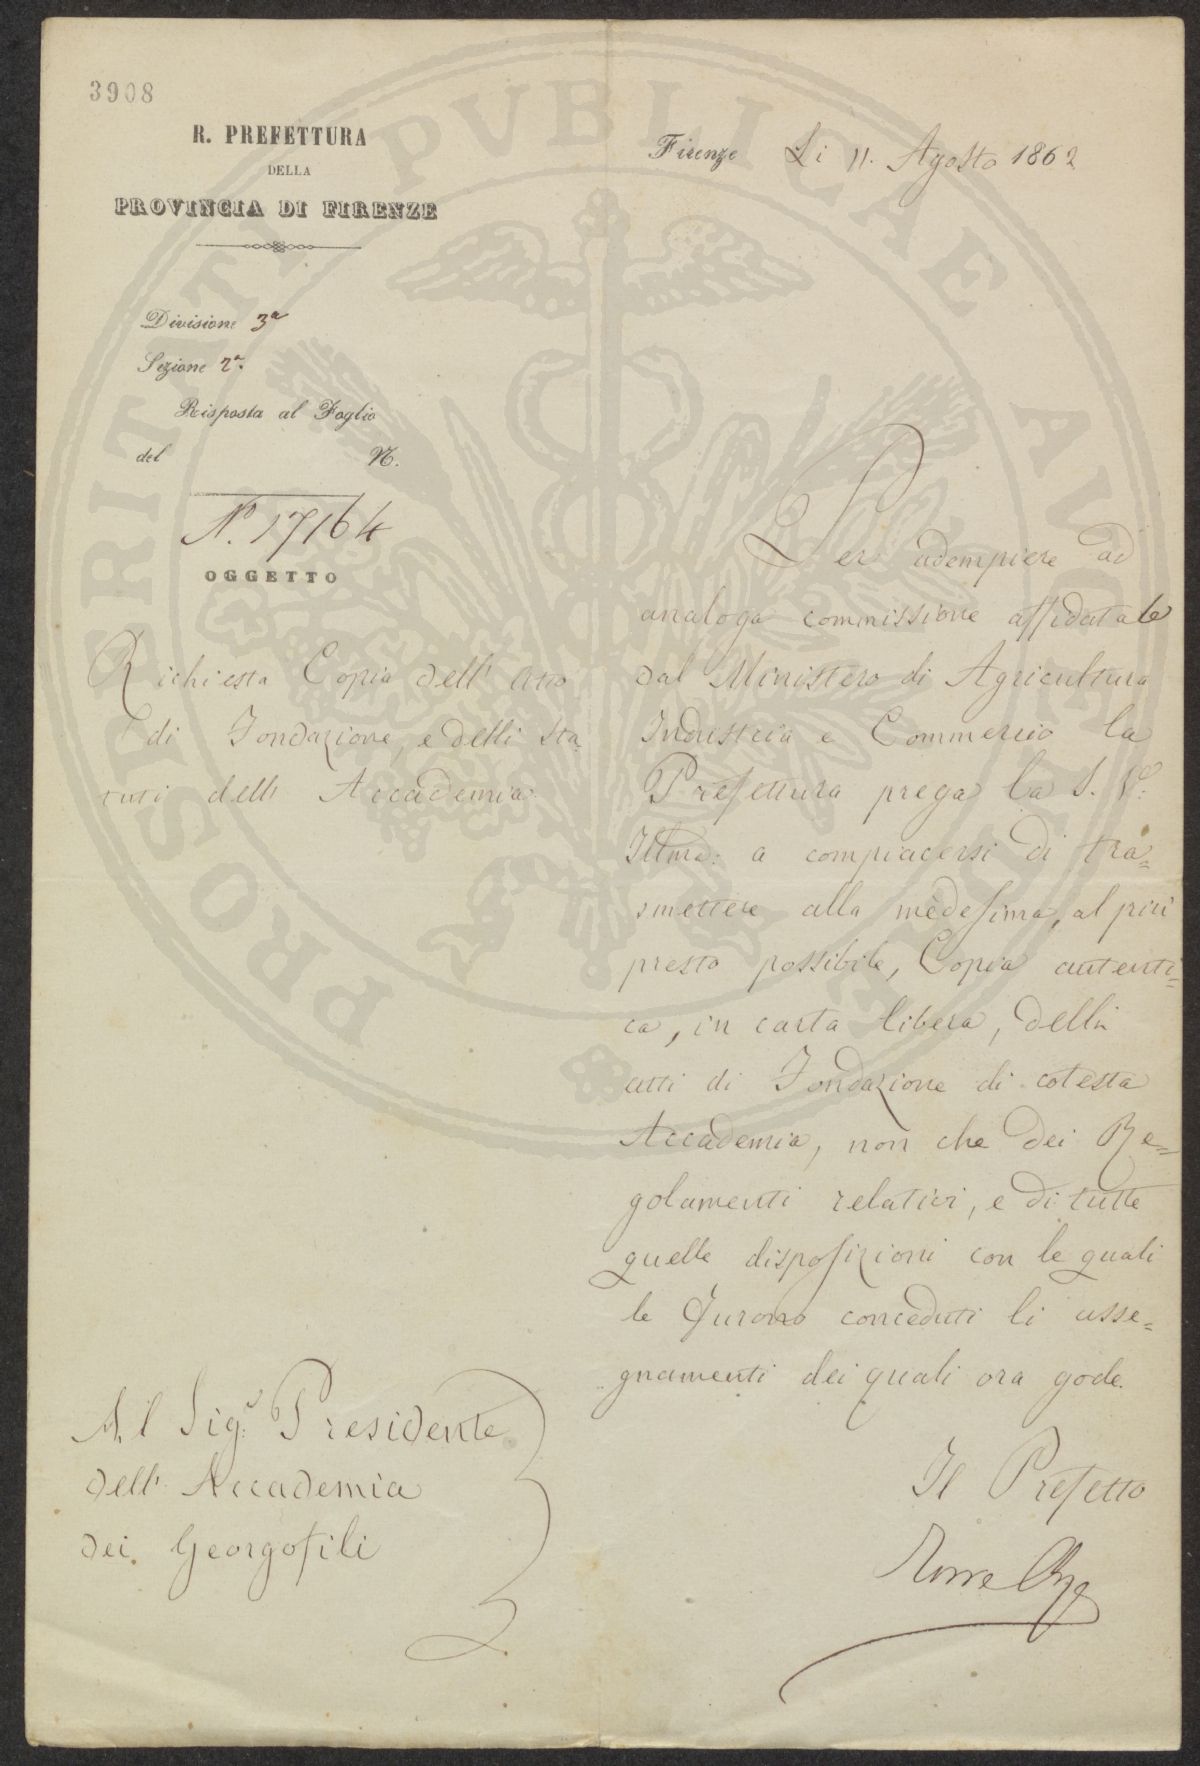 3908
R. PREFETTURA
DELLA
PROVINCIA DI FIRENZE
Firenze Li 11. Agosto 1862
Divisione 3a
Sezione 2a.
Risposta al Foglio
del N.
N. 17164
OGGETTO
Richiesta Copia dell' Atto
di Fondazione, e delli Sta
tuti dell' Accademia.
Per adempiere ad
analoga commissione affidatale
dal Ministero di Agricultura
Industria e Commercio la
Prefettura prega la S. V.
Illma: a compiacersi di tra=
smettere alla medesima, al più
presto possibile, Copia autenti=
ca, in carta libera, delli
atti di Fondazione di cotesta
Accademia, non che dei Re=
golamenti relativi, e di tutte
quelle disposizioni con le quali
le furono conceduti li asse=
gnamenti dei quali ora gode.
Al Sigr. Presidente
dell' Accademia
dei Georgofili
Il Prefetto
PROSPERITATI PVBLICAE AVGENDAE